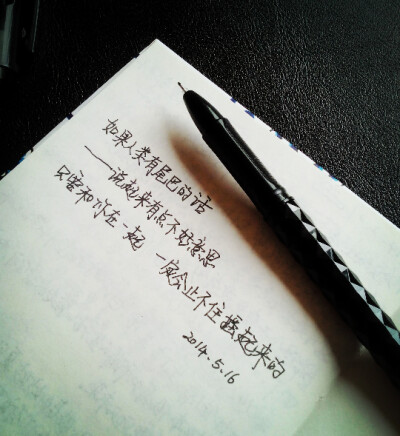 如果人类有尾巴的话
——说起来有点不好意思
只要和你在一起 一定会止不住摇起来的
2014.5.16